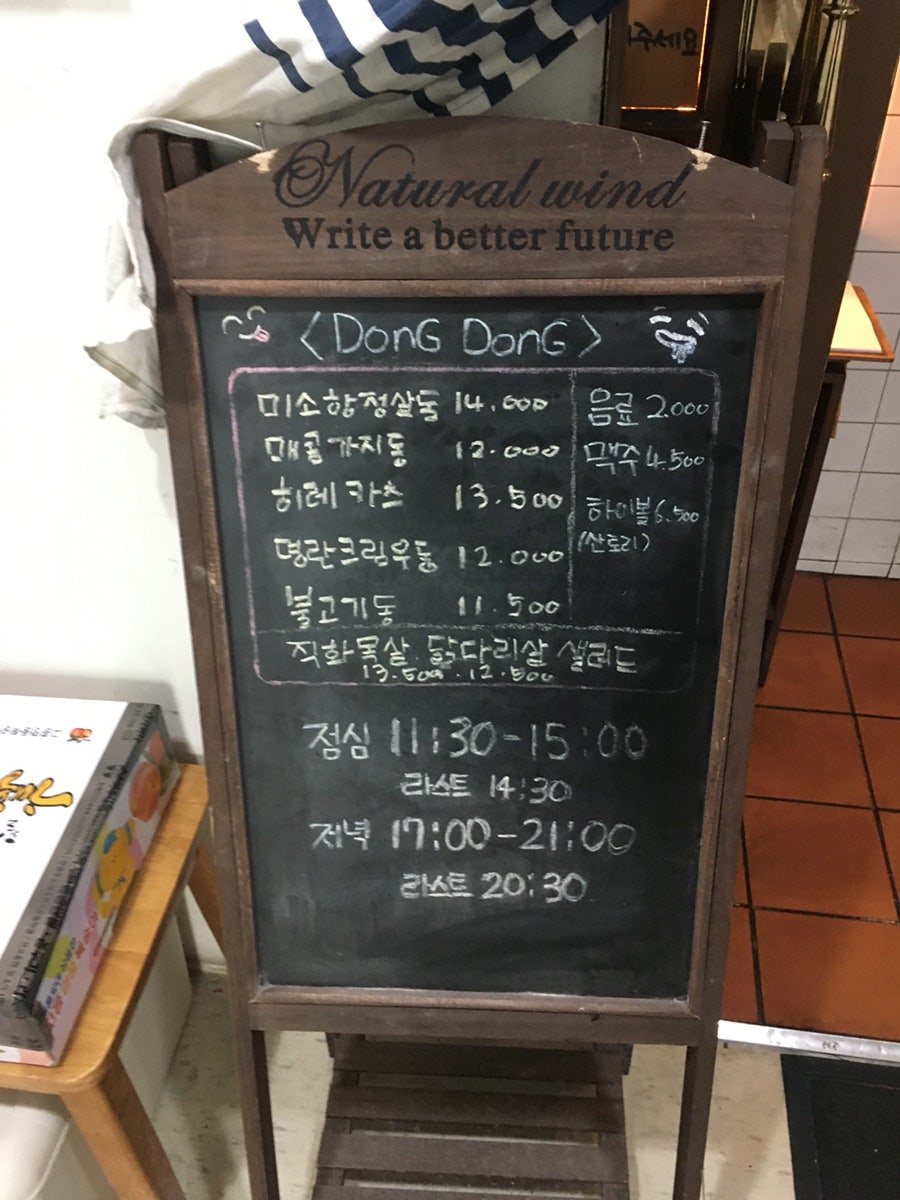 주세요
Natural wind
Write a better future
<DonG DonG>
미소항정살동 14.000
매콤가지동 12.000
히레카츠 13.500
명란크림우동 12.000
불고기동 11.500
음료 2.000
맥주 4.500
하이볼 6.500
(산토리)
직화목살, 닭다리살 샐러드
13.500, 12.500
점심 11:30-15:00
라스트 14:30
저녁 17:00-21:00
라스트 20:30